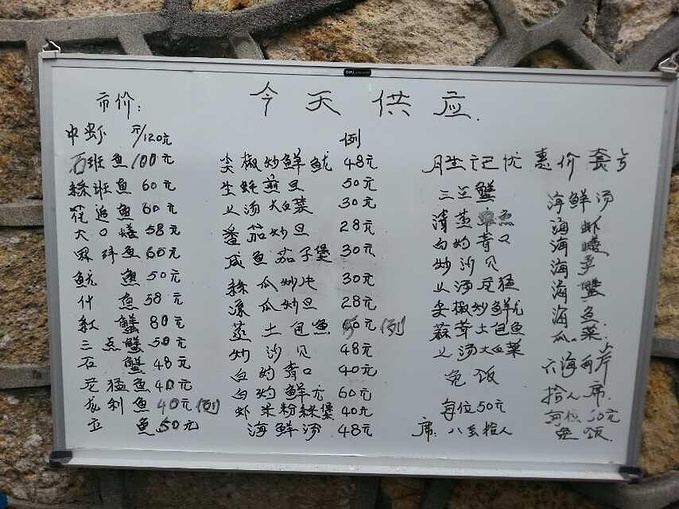 今天供应.
市价:
中虾 斤/120元
石班鱼100元
絲班鱼 60元
花追鱼 60元
大口鳝 58元
鱼 60元
鱿鱼 50元
什鱼 58元
紅蟹 80元
三点蟹 50元
石蟹 48元
鱼 40元
龙利鱼 40元 例
鱼 50元
例
尖椒炒鲜鱿 48元
50元
上汤大白菜 30元
番茄炒旦 28元
咸鱼茄子堡 30元
絲瓜炒肉 30元
凉瓜炒旦 28元
蒸土包鱼 60元 例
炒沙贝 48元
白灼青口 40元
白灼鲜尤 60元
虾米粉絲堡 40元
海鲜汤 48元
胜记优惠价套号
三点蟹
清蒸鱼
白灼青口
炒沙贝
尖椒炒鲜尤
蒜茸土包鱼
上汤大白菜
免饭
每位50元
席: 八至拾人
海鲜汤
海虾
海
海
海蟹
海鱼
瓜菜
拾人席.
每位60元
免饭